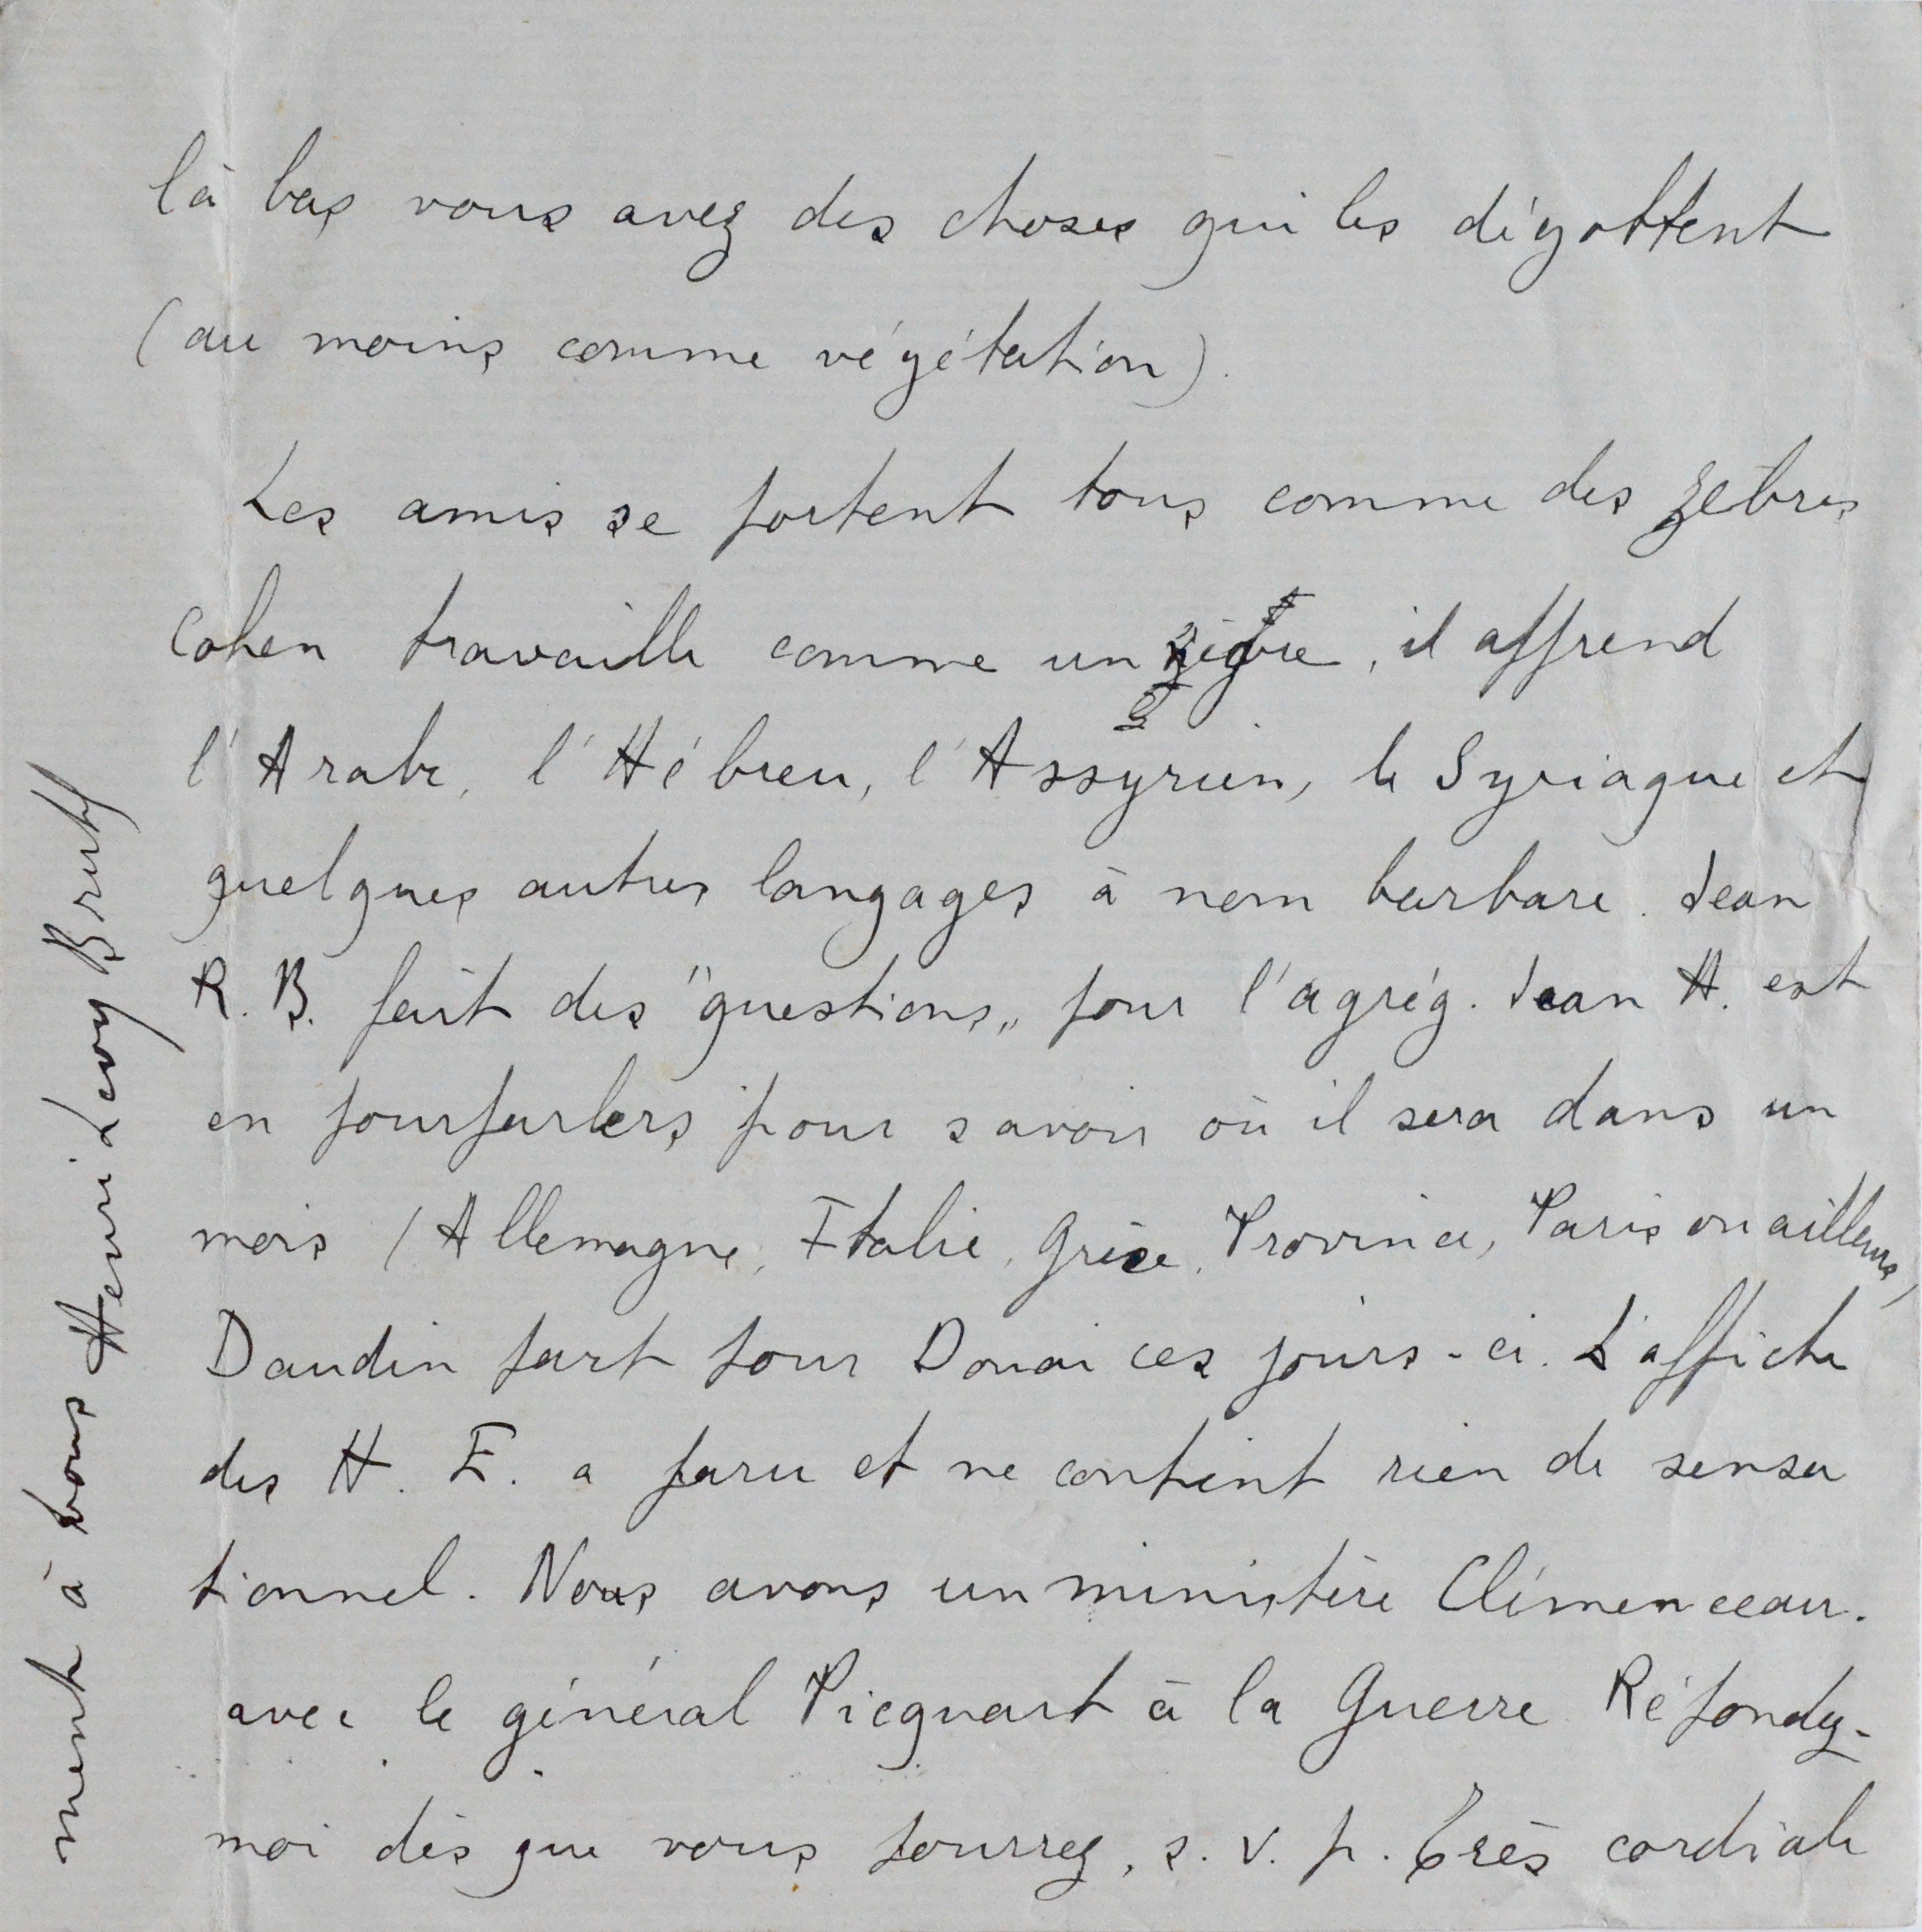 là bas vous avez des choses qui les dégottent
(au moins comme végétation).
Les amis se portent tous comme des zèbres
Cohen travaille comme un , il apprend
l'Arabe, l'Hébreu, l'Assyrien, le Syriaque et
quelques autres langages à nom barbare. Jean
R. B. fait des "questions„ pour l'agrég. Jean H. est
en pourparlers pour savoir où il sera dans un
mois (Allemagne, Italie, Grèce, Province, Paris ou ailleurs)
Daudin part pour Douai ces jours-ci. L'affiche
des H. E. a paru et ne contient rien de sensa
tionnel. Nous avons un ministère Clémenceau.
avec le général Picquart à la Guerre Répondez-
moi dès que vous pourrez, s. v. p. Très cordiale
ment à vous Henri Levy Bruhl